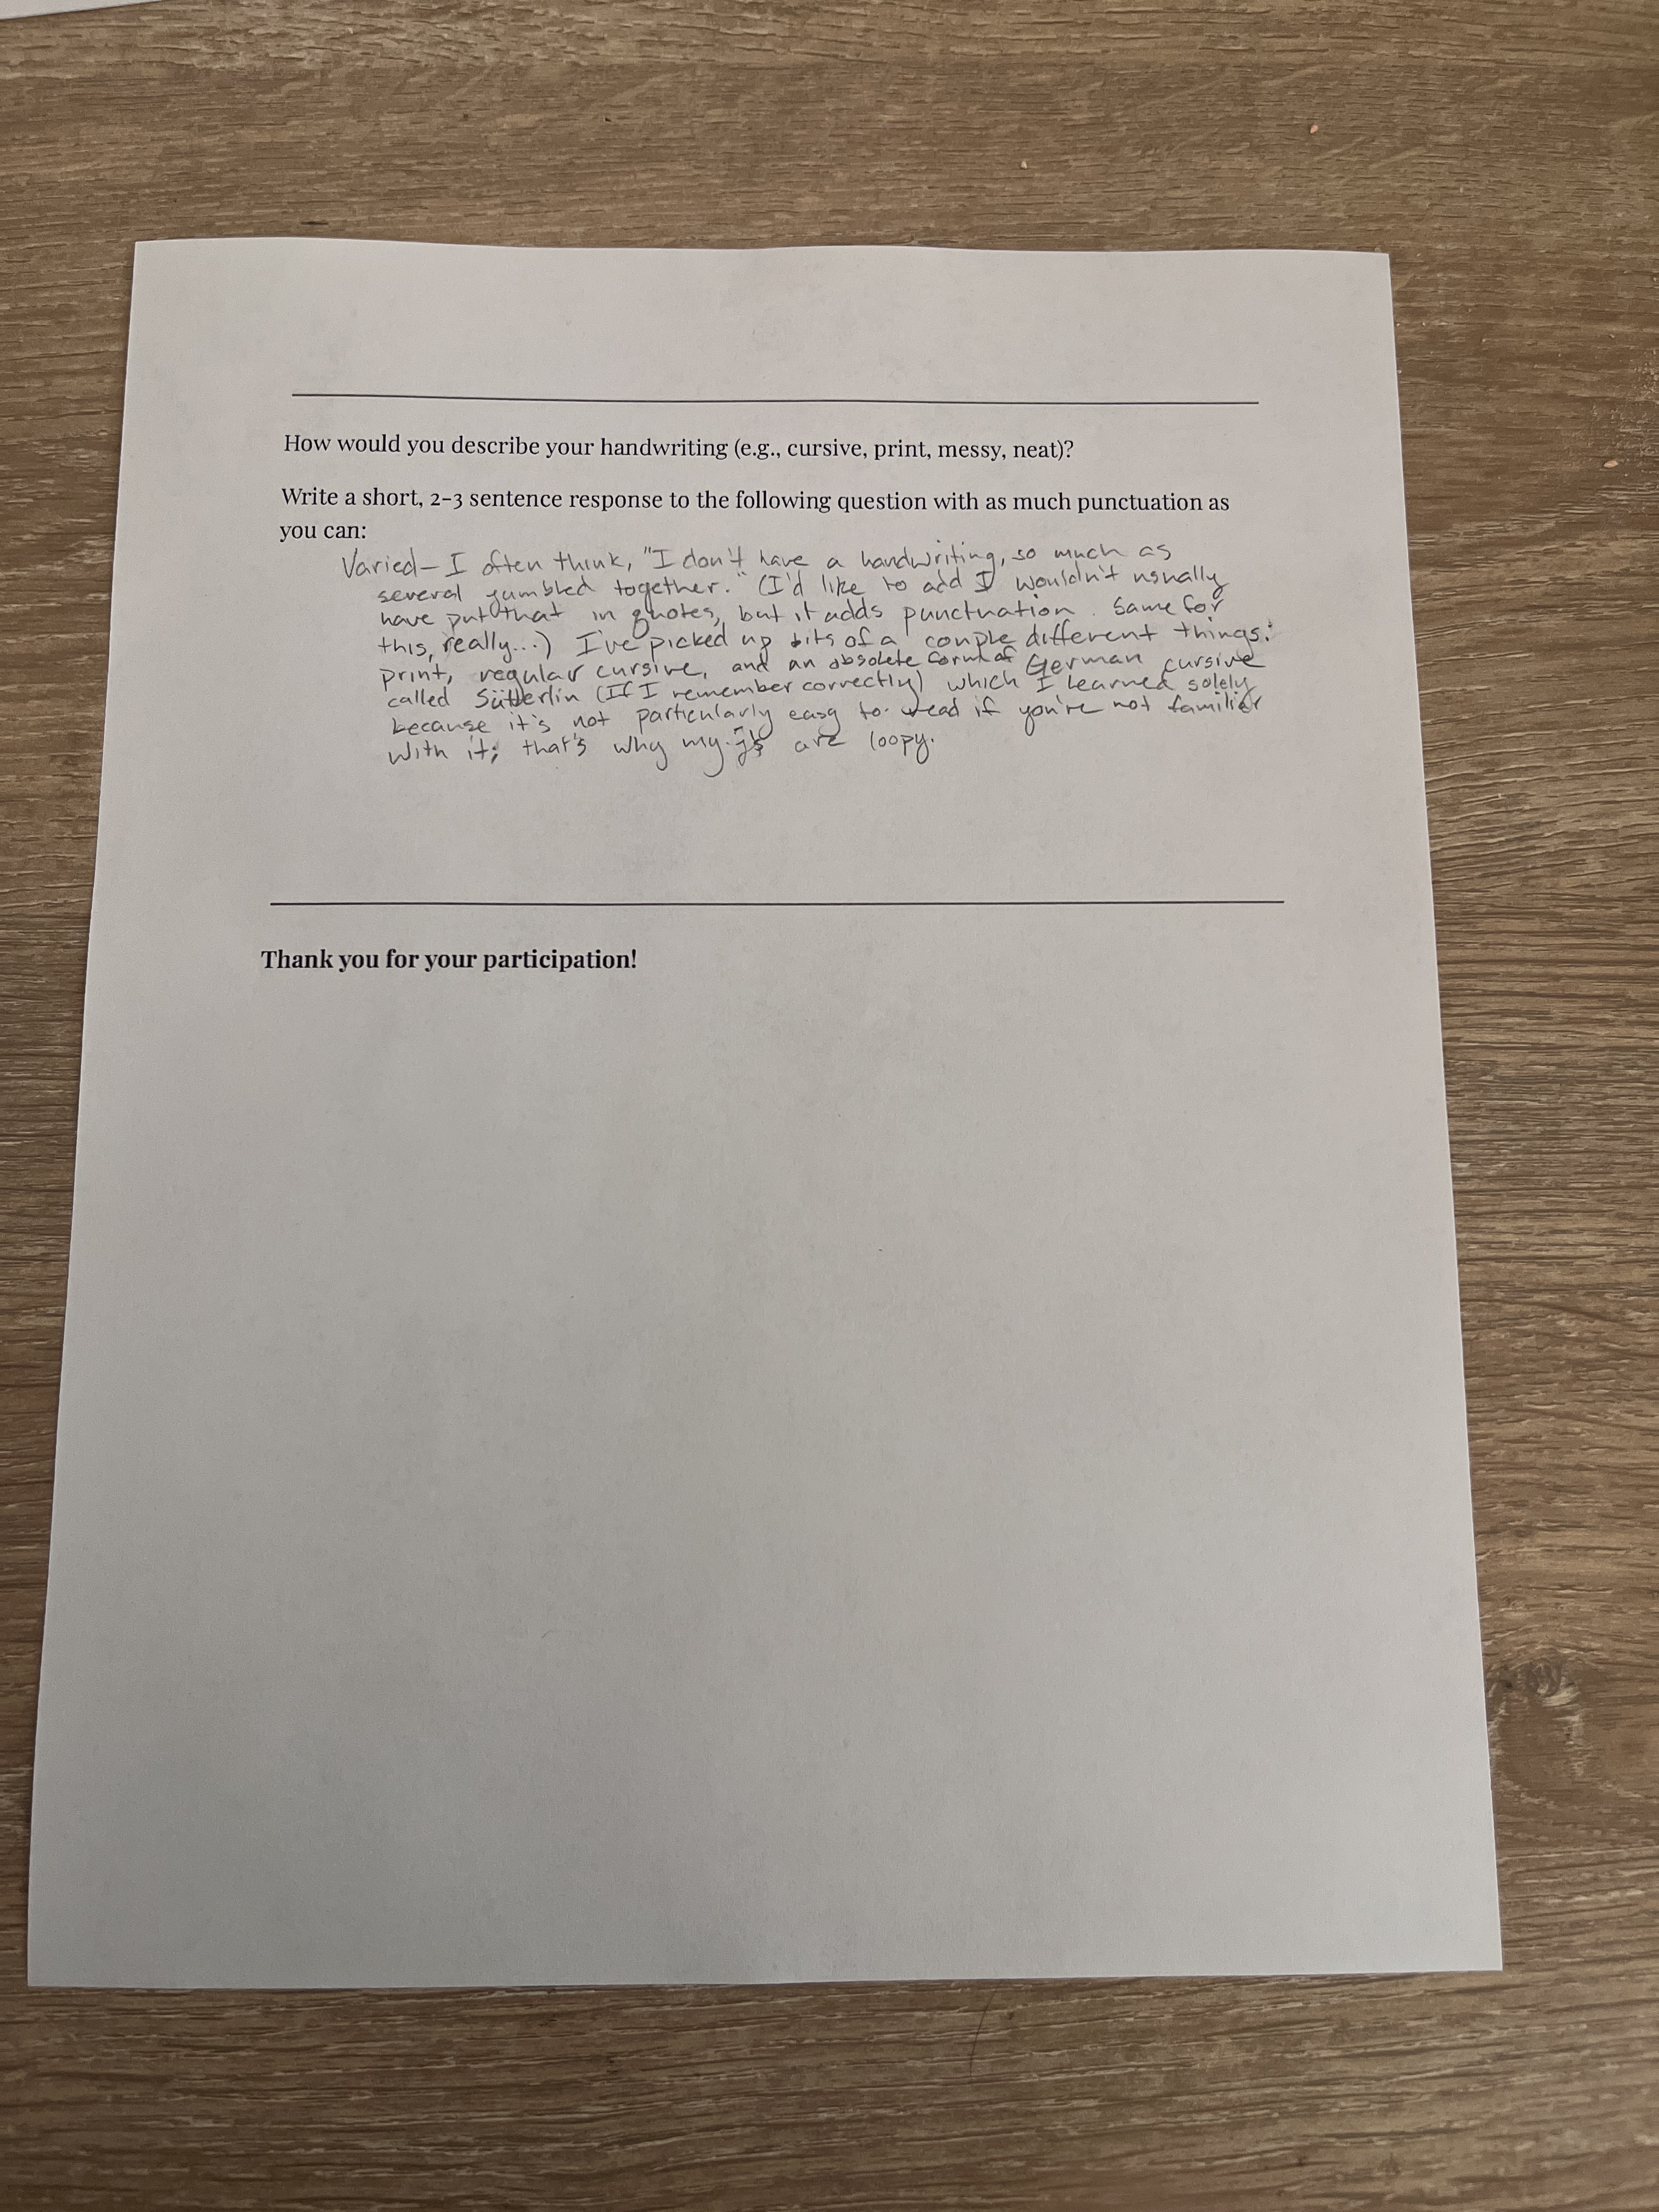 How would you describe your handwriting (e.g., cursive, print, messy, neat)?
Write a short, 2-3 sentence response to the following question with as much punctuation as
you can:
Varied—I often think, "I don't have a handwriting, so much as
several jumbled together." (I'd like to add I wouldn't usually
have put that in quotes, but it adds punctuation. Same for
this, really...) I've picked up bits of a couple different things:
print, regular cursive, and an obsolete form of German cursive
called Sütterlin (If I remember correctly) which I learned solely
because it's not particularly easy to read if you're not familier
with it; that's why my js are loopy.
Thank you for your participation!